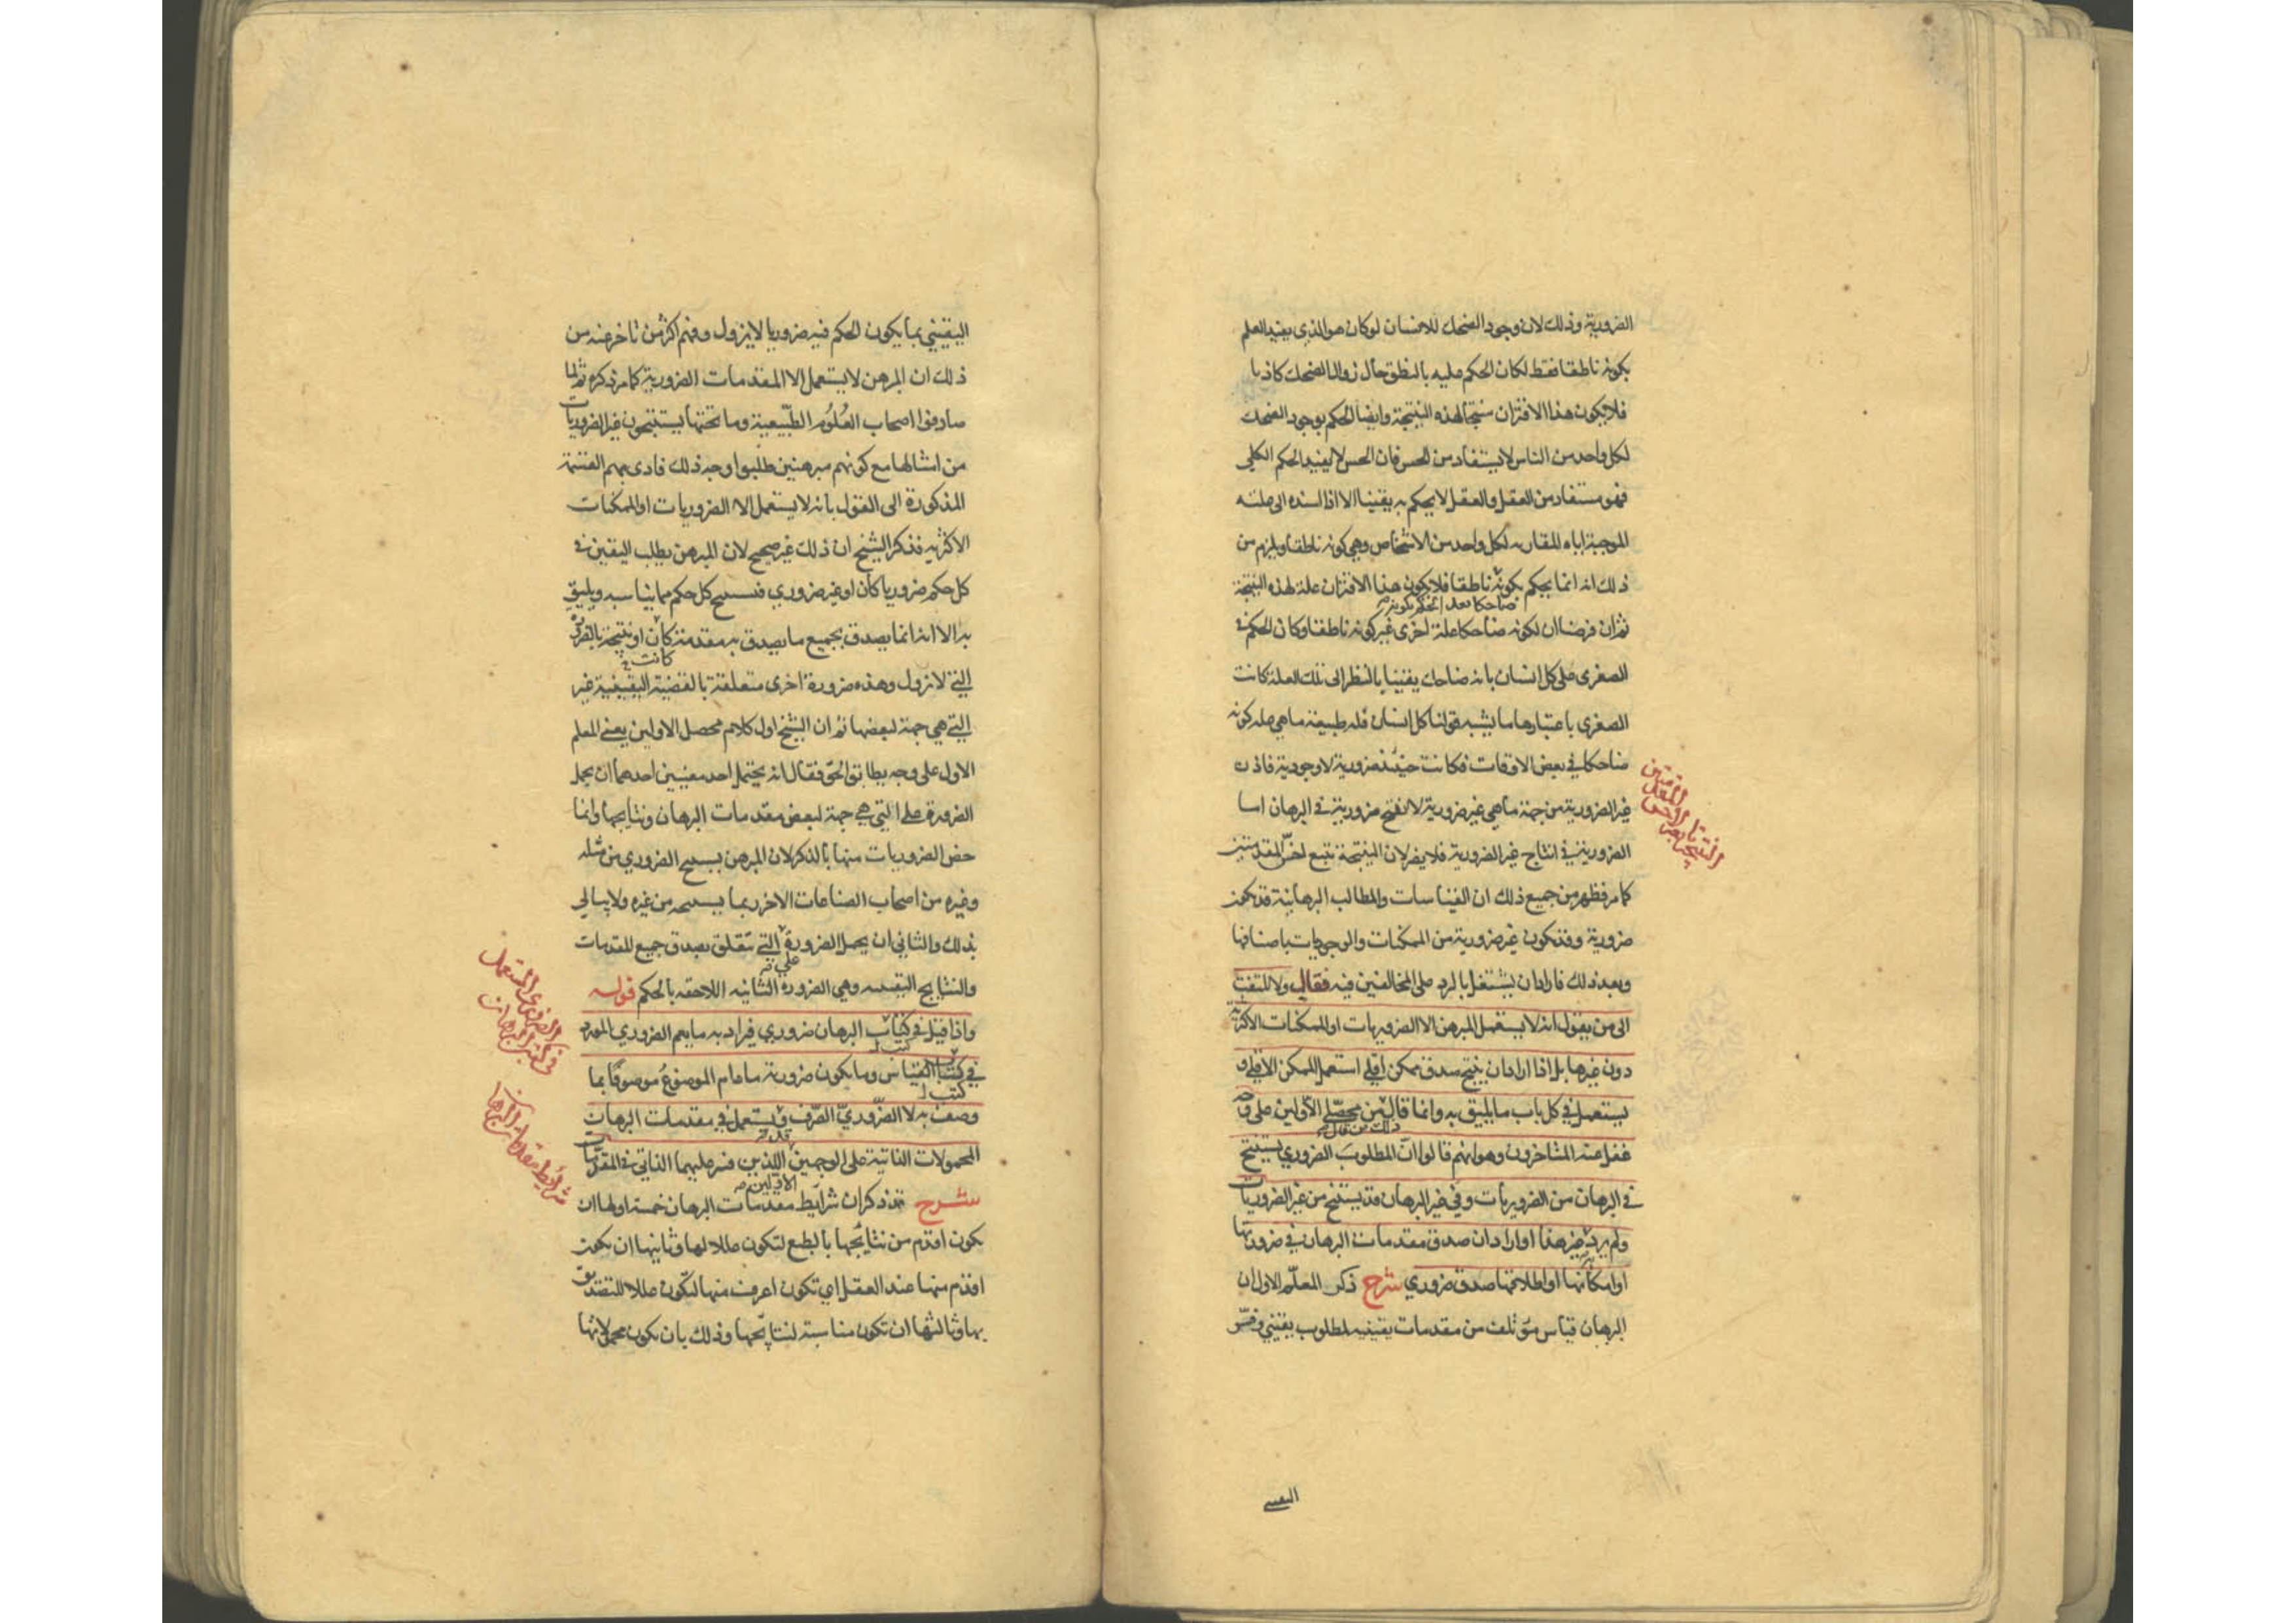 الضرورية وذلك لان وجود الضحك للانسان لو كان هو الذي يفيد العلم
بكونه ناطقا فقط لكان الحكم عليه بالنطق حال زوال الضحك كاذبا
فلا يكون هذا الاقتران منتجا لهذه النتيجة وايضا الحكم بوجود الضحك
لكل واحد من الناس لا يستفاد من الحس فان الحس لا يفيد الحكم الكلي
فهو مستفاد من العقل والعقل لا يحكم به يقينا الا اذا اسنده الى علته
الموجبة اياه المقارنه لكل واحد من الاشخاص وهي كونه ناطقا ويلزم من
ذلك انه انما يحكم بكونه ناطقا فلا يكون هذا الاقتران علة لهذه النتيجة
ضاحكا بعد الحكم بكونه
ثم ان فرضنا ان لكونه ضاحكا علة اخرى غير كونه ناطقا وكان الحكم في
الصغرى على كل انسان بانه ضاحك يقينيا بالنظر الى تلك العلة كانت
الصغرى باعتبارها ما يشبه قولنا كل انسان فله طبيعة ما هي علة كونه
ضاحكا في بعض الاوقات فكانت حينئذ ضرورية لا وجودية فاذن
غير الضرورية من جهة ما هي غير ضرورية لا تنتج ضرورية في البرهان اما
الضرورية في انتاج غير الضرورية فلا يضر لان النتيجة تتبع اخس المقدمتين
كما مر فظهر من جميع ذلك ان القياسات والمطالب البرهانية قد تكون
ضرورية وقد تكون غير ضرورية من الممكنات والوجوديات باصنافها
وبعد ذلك فاراد ان يشتغل بالرد على المخالفين فيه فقال ولا تلتفت
الى من يقول انه لا يستعمل المبرهن الا الضروريات او الممكنات الاكثرية
دون غيرها بل اذا اراد ان ينتج صدق ممكن اقلي استعمل الممكن الاقلي و
يستعمل في كل باب ما يليق به وانما قال من محصلي الاولين على وجه
ذلك من قال
غفل عنه المتاخرون وهو انهم قالوا ان المطلوب الضروري يستنتج
في البرهان من الضروريات وفي غير البرهان قد يستنتج من غير الضروريات
ولم يرد غير هذا او اراد ان صدق مقدمات البرهان في ضرورتها
او امكانها او اطلاقها صدق ضروري شرح ذكر المعلم الاول ان
البرهان قياس مؤتلف من مقدمات يقينيه لمطلوب يقيني وفسر
اليقيني
اليقيني بما يكون الحكم فيه ضروريا لا يزول وفهم اكثر من تاخر عنه من
ذلك ان المبرهن لا يستعمل الا المقدمات الضرورية كما مر ذكره ثم لما
صادفوا اصحاب العلوم الطبيعية وما تحتها يستنتجون غير الضروريات
من امثالها مع كونهم مبرهنين طلبوا وجه ذلك فادى بهم القسمة
المذكورة الى القول بانه لا يستعمل الا الضروريات او الممكنات
الاكثريه فذكر الشيخ ان ذلك غير صحيح لان المبرهن يطلب اليقين في
كل حكم ضروريا كان او غير ضروري فيستنتج كل حكم مما يناسبه ويليق
به الا انه انما يصدق بجميع ما يصدق به مقدمة كان او نتيجة بالضرورة
كانت
التي لا تزول وهذه ضرورة اخرى متعلقة بالقضية اليقينية غير
التي هي جهة لبعضها ثم ان الشيخ اول كلام محصل الاولين يعني المعلم
الاول على وجه يطابق الحق فقال انه يحتمل احد معنيين احدهما ان يحمل
الضرورة على التي هي جهة لبعض مقدمات البرهان ونتايجها وانما
خص الضروريات منها بالذكر لان المبرهن يستنتج الضروري من مثله
وغيره من اصحاب الصناعات الاخر ربما يستنتجه من غيره ولا يبالي
بذلك والثاني ان يحمل الضرورة التي تتعلق بصدق جميع المقدمات
على
والنتايج اليقينيه وهي الضرورة الثانيه اللاحقه بالحكم قوله
واذا قيل في كتاب البرهان ضروري فيراد به ما يعم الضروري المورد
كتب
في كتاب القياس وما يكون ضرورية ما دام الموضوع موصوفا بما
كتب
وصف به لا الضروري الصرف ويستعمل في مقدمات البرهان
المحمولات الذاتية على الوجهين اللذين فسر عليهما الذاتي في المقدمات
الاولين
شرح قد ذكر ان شرايط مقدمات البرهان خمسة اولها ان
تكون اقدم من نتايجها بالطبع لتكون عللا لها وثانيها ان تكون
اقدم منها عند العقل اي تكون اعرف منها لتكون عللا للتصديق
بها وثالثها ان تكون مناسبة لنتايجها وذلك بان تكون محمولاتها
شرائط مقدمات البرهان